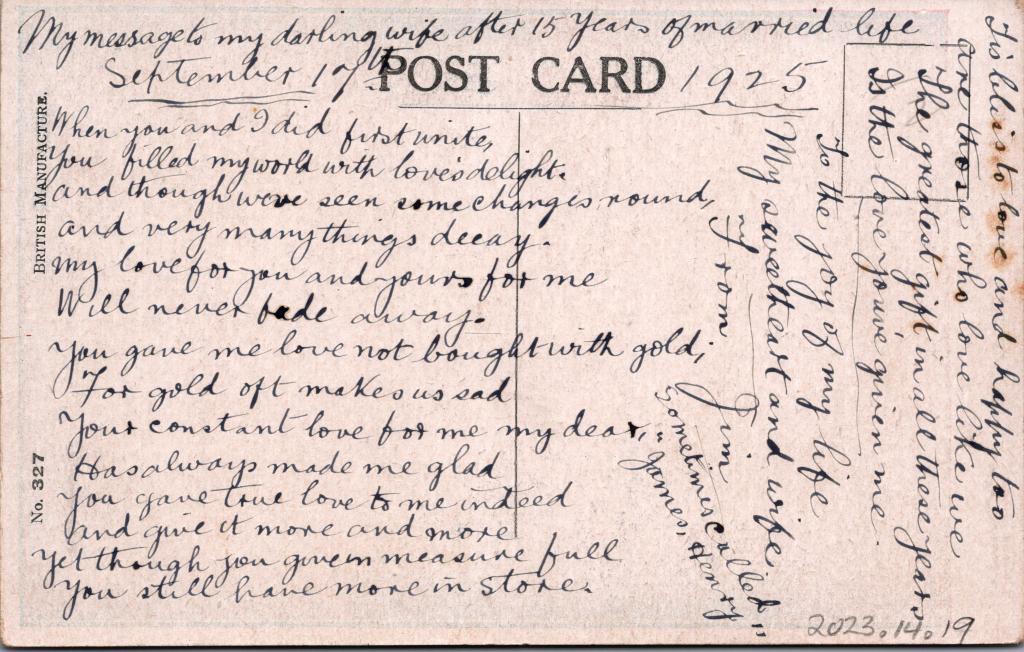 My message to my darling wife after 15 Years of married life
September 17th 1925
POST CARD
BRITISH MANUFACTURE.
No. 327
When you and I did first unite,
You filled my world with love's delight.
and though weve seen some changes round,
and very many things decay.
My love for you and yours for me
Will never fade away.
You gave me love not bought with gold;
For gold oft makes us sad
Your constant love for me my dear,
Has always made me glad
You gave true love to me indeed
and give it more and more
Yet though you given measure full
You still have more in store.
Tis bliss to love and happy too
are those who love like we
The greatest gift in all these years
Is the love you've given me.
To the joy of my life
My sweetheart and wife
From Jim
Sometimes called
"James, Henry"
2023.14.19